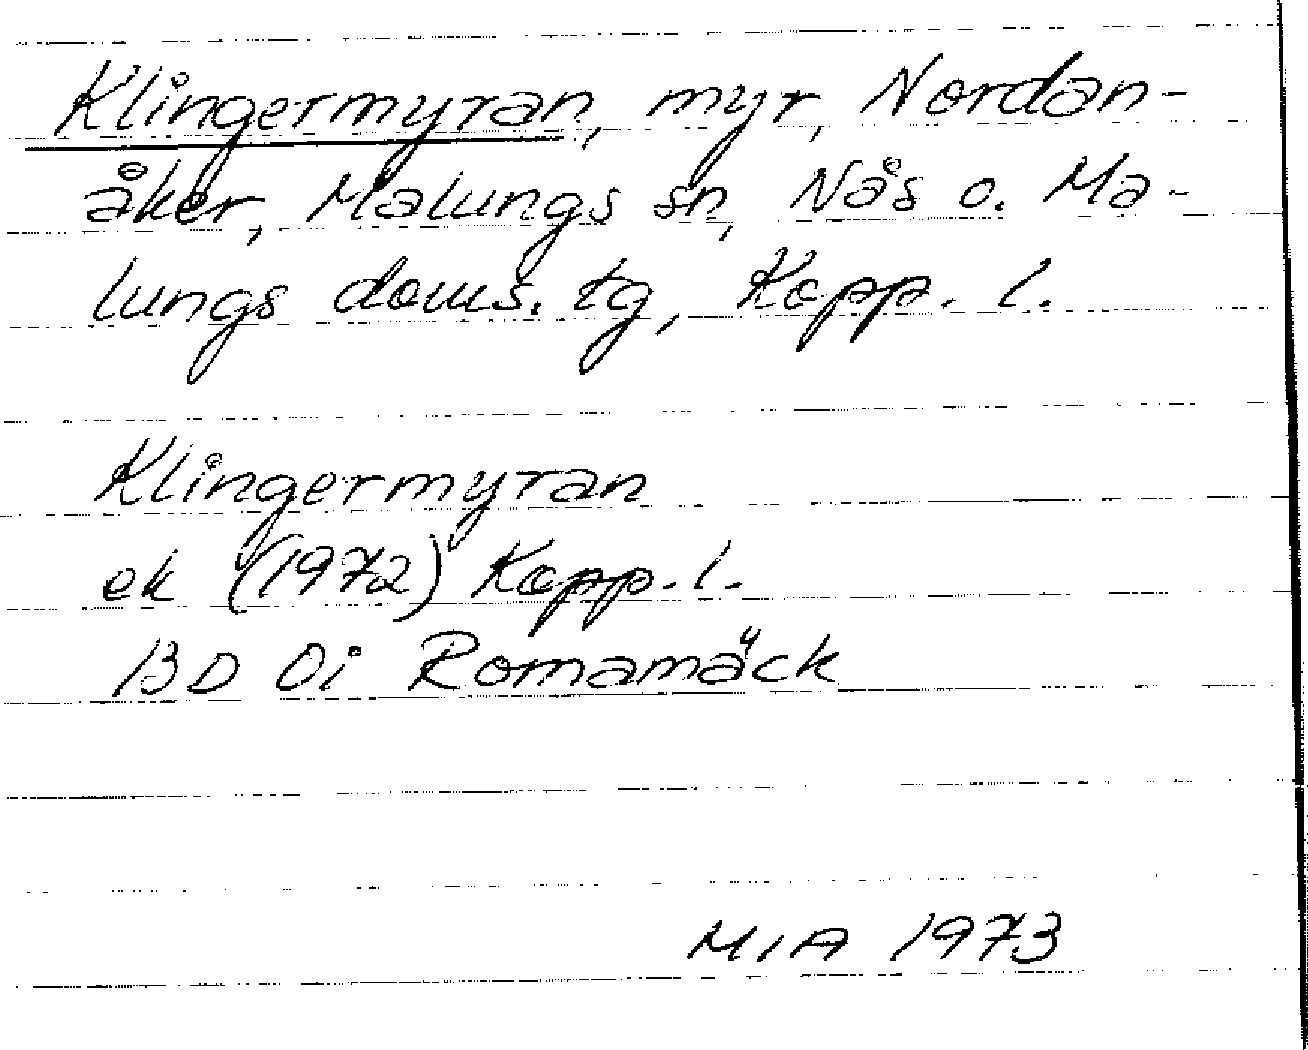 Klingermyran, myr, Nordan-
åker, Malungs sn, Nås o. Ma-
lungs doms. tg, Kopp. l.
Klingermyran
ek (1972) Kopp. l.
BD Oi Romamäck
MIA 1973